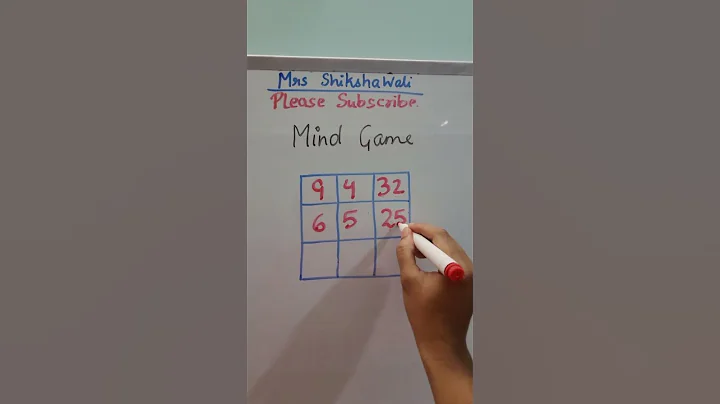 Mrs ShikshaWali
Please Subscribe.
Mind Game
9 4 32
6 5 25